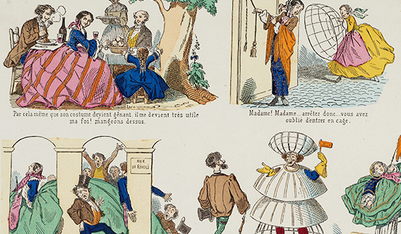 Par cela même que son costume devient gênant, il me devient très utile
ma foi! mangeons dessus.
Madame! Madame... arrêtez donc... vous avez
oublié d'entrer en cage.
RUE